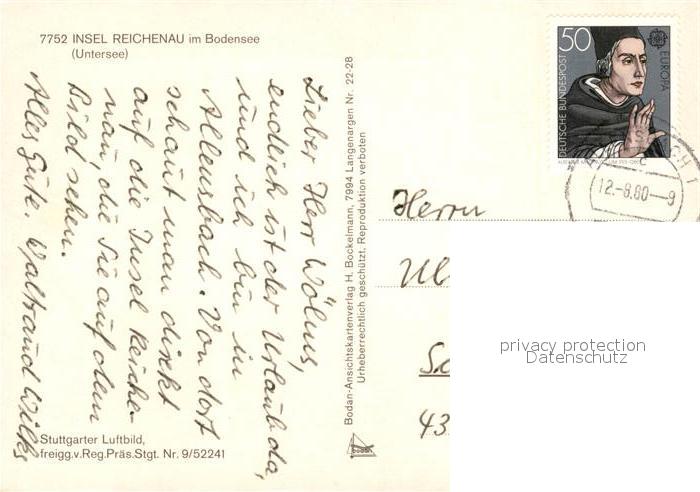 7752 INSEL REICHENAU im Bodensee
(Untersee)
Lieber Herr Wölms,
endlich ist der Urlaub da,
und ich bin in
Allensbach. Von dort
schaut man direkt
auf die Insel Reiche-
nau, die Sie auf dem
Bild sehen.
Alles Gute. Waltraud Wilks
Stuttgarter Luftbild,
freigg.v.Reg.Präs.Stgt. Nr. 9/52241
Bodan-Ansichtskartenverlag H. Bockelmann, 7994 Langenargen Nr. 22-28
Urheberrechtlich geschützt. Reproduktion verboten
bodan
50
DEUTSCHE BUNDESPOST
EUROPA
12.-8.80--9
Herrn
Ul
43
privacy protection
Datenschutz